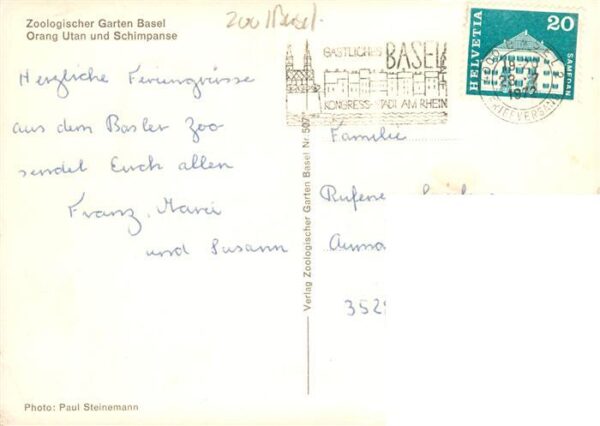 Zoologischer Garten Basel
Orang Utan und Schimpanse
Zoo Basel.
Herzliche Feriengrüsse
aus dem Basler Zoo
sendet Euch allen
Franz, Marei
und Susann
GASTLICHES BASEL
KONGRESS-STADT AM RHEIN
HELVETIA 20
SAMEDAN
1972
BRIEFVERSAND
Familie
3529
Verlag Zoologischer Garten Basel Nr. 507
Photo: Paul Steinemann